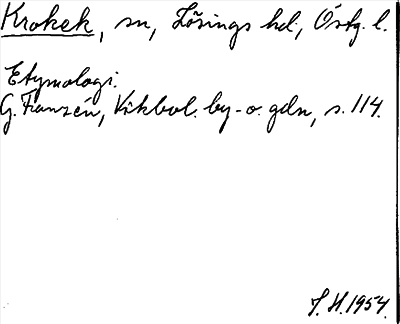 Krokek, sn, Lösings hd., Östg. l.
Etymologi.
G. Franzén, Vikbol. by- o. gdn, s. 114.
S. H. 1954.